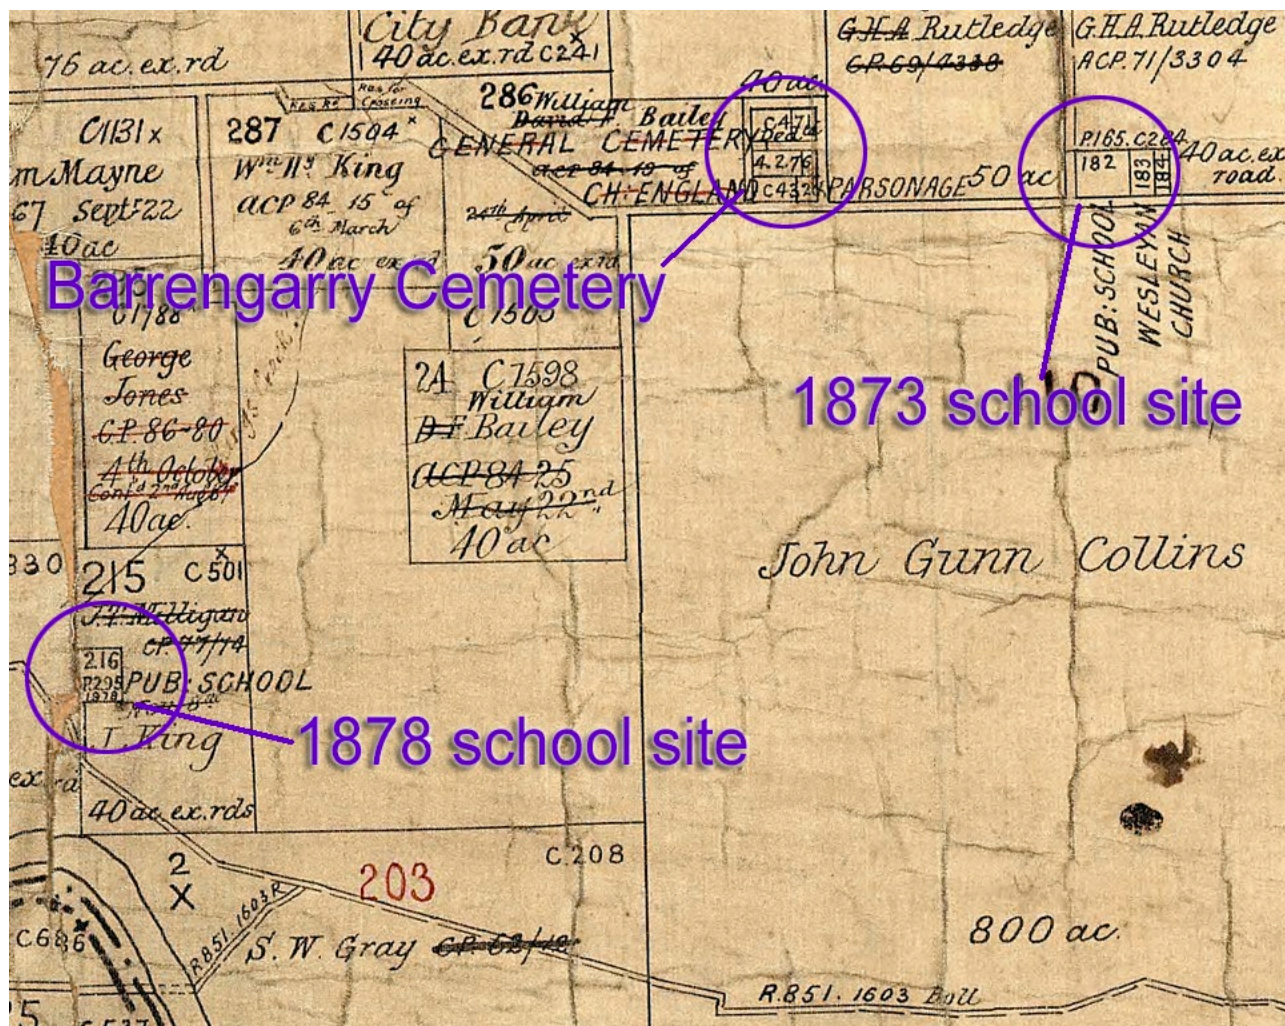 City Bank
40 ac. ex. rd C241
76 ac. ex. rd
G.H.A. Rutledge
C.P. 69/4338
G.H.A. Rutledge
ACP. 71/3304
Res. for
Crossing
Res. Rd
C1131 x
Mayne
67 Sept. 22
40 ac
287 C1504 x
Wm Hy King
ACP 84. 15 of
6th March
40 ac ex rd
286 William
David F. Bailey
GENERAL CEMETERY
ACP 84. 13 of
CH: ENGLAND
24th April
50 ac ex rd
C 1505
40 ac.
C.471
Ded
4.2.76
C432
PARSONAGE
50 ac
P.165. C284
182
183
184
40 ac. ex
road.
PUB: SCHOOL
WESLEYAN
CHURCH
Barrengarry Cemetery
1873 school site
C1788
George
Jones
C.P. 86-80
4th October
40 ac.
2A C1598
William
D F Bailey
ACP 84 25
May 22nd
40 ac
John Gunn Collins
330
215 C501
J.F. Milligan
CP. 77/14
216
P.295
1878
PUB: SCHOOL
J. King
1878 school site
ex. rd
40 ac. ex. rds
2
X
203
C.208
R851. 1603 R
C686
S. W. Gray C.P. 62/12
800 ac.
R.851. 1603 Boll
C.537